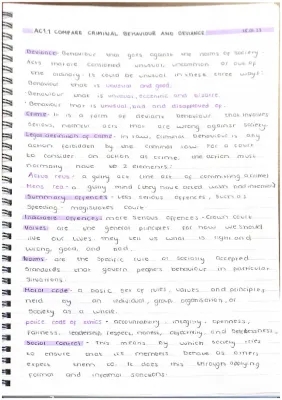 AC1.1 COMPARE CRIMINAL BEHAVIOUR AND DEVIANCE
Deviance- Behaviour that goes against the norms of society
Acts that are considered unusual, uncommon or out of
the ordinary. It could be unusual in these three ways:
Behaviour that is unusual and good.
Behaviour that is unusual, eccentric and bizarre.
Behaviour that is unusual, bad and disapproved of.
Crime- It is a form of deviant behaviour that involves
serious, harmful acts that are wrong against society.
Legal definition of crime- in law, criminal behaviour is any
action forbidden by the criminal law. For a court
to consider an action as crime, the action must
normally have to 2 elements:
Actus reus- a guilty act (the act of committing a crime)
Mens rea- a guilty mind (they have acted with bad intention)
Summary offences- less serious offences, such as
speeding - magistrates court
Indictable offences- more serious offences - Crown court
Values- are the general principles for how we should
live our lives. They tell us what is right and
wrong, good and bad.
Norms- are the specific rule or socially accepted
standards that govern people's behaviour in particular
situations.
Moral code- a basic set of rules, values and principles,
held by an individual, group, organisation, or
society as a whole.
police code of ethics- accountability, integrity, openness,
fairness, leadership, respect, honesty, objectivity, and selflessness.
Social Control- This means by which society tries
to ensure that its members behave as others
expect them to. It does this through applying
formal and informal sanctions.